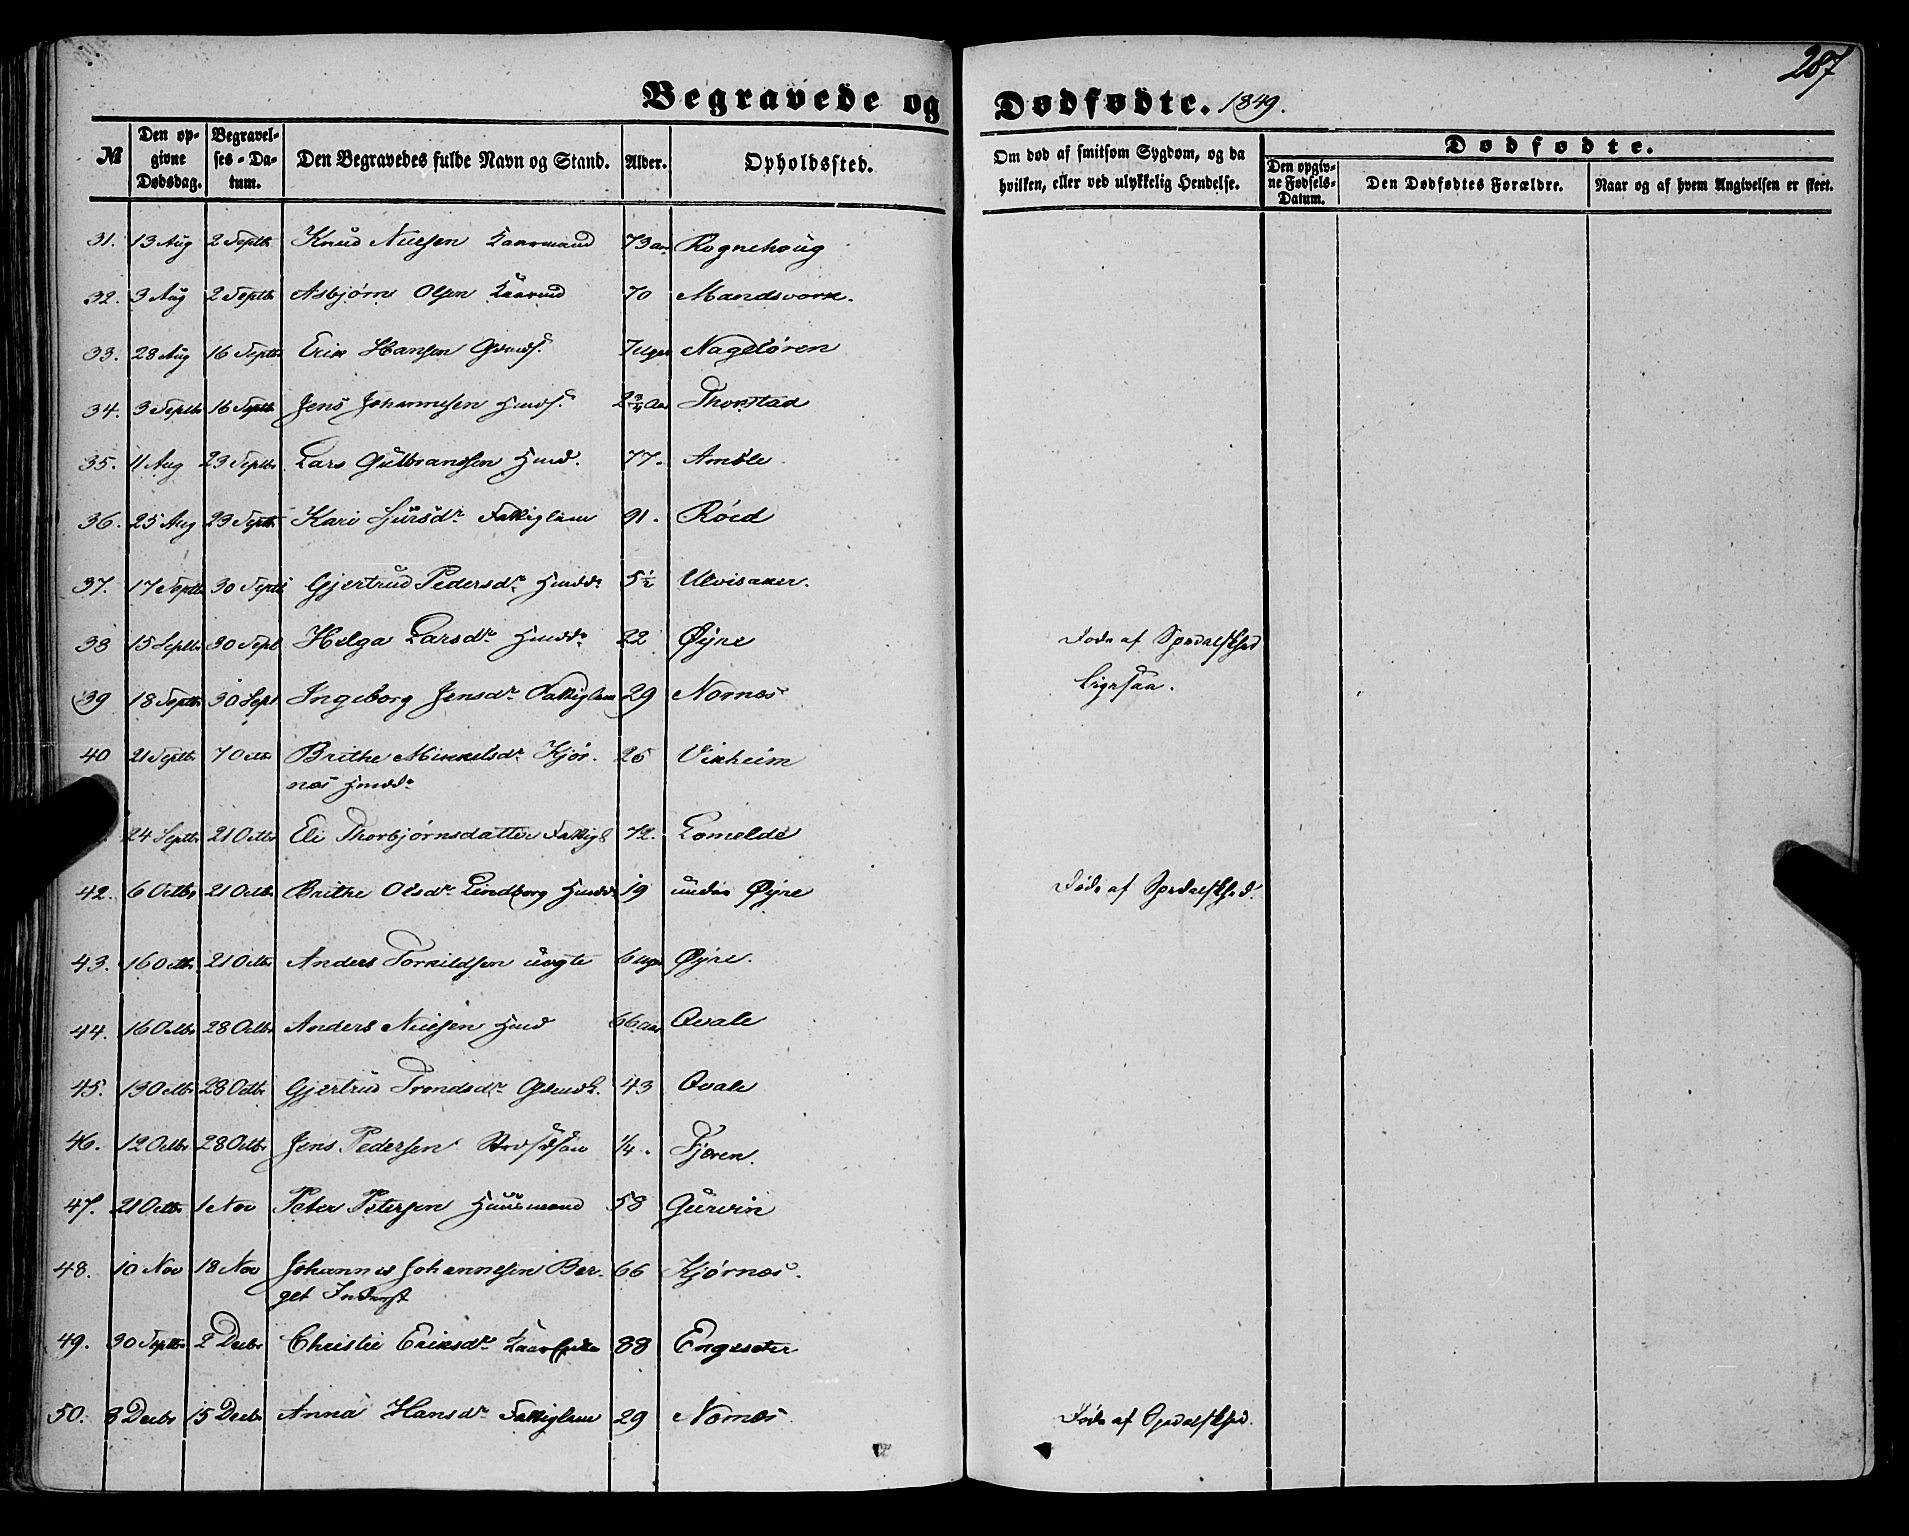 287
Begravede og Dødfødte. 1849.
№ Den opgivne Dødsdag. Begravelses-Datum. Den Begravedes fulde Navn og Stand. Alder. Opholdssted. Om død af smitsom Sygdom, og da hvilken, eller ved ulykkelig Hendelse. Dødfødte. Den opgivne Fødsels-Datum. Den Dødfødtes Forældre. Naar og af hvem Angivelsen er skeet.
31. 13 Aug 2 Septb Knud Nielsen Kaarmand 73 aar Rognehoug
32. 3 Aug 2 Septb Asbjørn Olsen 70 Mandsverk.
33. 28 Aug 16 Septb Erik Hansen 7 Uger Nageløren
34. 3 Septb 16 Septb Jens Johannesen 2 3/4 Aar Thorstad
35. 11 Aug 23 Septbr Lars Gulbranssen Hmd. 77. Amble
36. 25 Aug 23 Septb Kari Sjursdr Fattiglem 91. Røed
37. 17 Septb 30 Septb Gjertrud Pedersdr 5 1/2 Ulvisaker.
38 15 Septb 30 Sept Helga Larsdr 22 Øyne Døde af Spedalskhed
39 18 Septb 30 Sept Ingeborg Jensdr Fattiglem 29 Nornæs Ligesaa.
40 21 Septb 7 Octbr Brithe Mikkelsdr Kjør-
næs 26 Vikheim
24 Septb 21 Octbr Eli Thorbjørnsdatter Fattigl 72. Lomelde
42. 6 Octbr 21 Octbr Brithe Olsdr Lindborg 19 under Øyne Døde af Spedalskhed.
43. 16 Octb 21 Octbr Anders Torkildsen uægte 6 Uger Øyne.
44. 16 Octbr 28 Octbr Anders Nielsen Hmd 66 aar Qvale
45. 13 Octbr 28 Octbr Gjertrud Trondsdr 43 Qvale
46. 12 Octbr 28 Octbr Jens Pedersen 1/4. Fjæren.
47. 21 Octbr 1 Nov Peter Petersen Huusmand 58 Gurvin
48. 10 Nov 18 Nov Johannes Johannesen Ber-
get Inderst 66 Kjørnæs.
49. 30 Septb 2 Decbr Christie Eriksdr Kaarenke 88 Engesæter
50. 8 Decbr 15 Decbr Anna Hansdr Fattiglem 29 Nornæs. Døde af Spedalskhed.